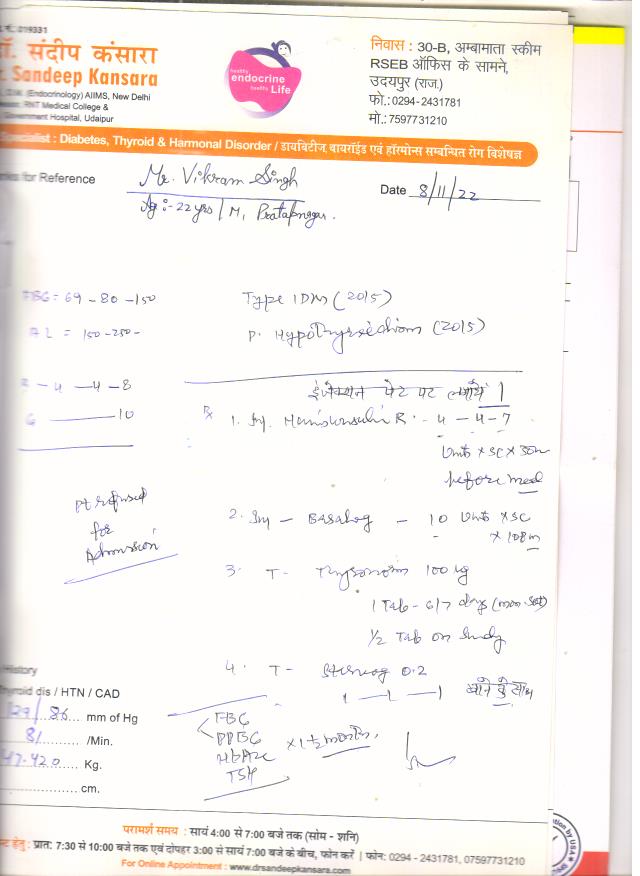 019331
डॉ. संदीप कंसारा
Sandeep Kansara
(Endocrinology) AIIMS, New Delhi
RNT Medical College &
Government Hospital, Udaipur
healthy
endocrine
healthy Life
निवास : 30-B, अम्बामाता स्कीम
RSEB ऑफिस के सामने,
उदयपुर (राज.)
फो.:0294-2431781
मो.:7597731210
Specialist : Diabetes, Thyroid & Harmonal Disorder / डायबिटीज, थायरॉईड एवं हॉरमोन्स सम्बन्धित रोग विशेषज्ञ
for Reference
Mr. Vikram Singh
Date 8/11/22
Ag :- 22 yrs / M, Pratapnagar.
FBG = 69 - 80 - 150
Type 1 DM (2015)
AL = 150 - 250 -
P. Hypothyroidism (2015)
R - 4 - 4 - 8
इंजेक्शन पेट पर लगायें
G 10
Rx 1. Inj. Human R - 4 - 4 - 7
Units x SC x 30m
before meal
Pt refused
for
Admission
2. Inj - Basalog - 10 Units x SC
x 10pm
3. T - Thyronorm 100 ug
1 Tab - 6/7 days (mon-sat)
1/2 Tab on Sunday
4. T - 0.2
1 - 1 - 1 खाने के साथ
History
Thyroid dis / HTN / CAD
129/86 mm of Hg
81 /Min.
47.420 Kg.
cm.
FBG
PPBG
HbA1c
TSH
x 1 1/2 months.
परामर्श समय : सायं 4:00 से 7:00 बजे तक (सोम - शनि)
हेतु : प्रात: 7:30 से 10:00 बजे तक एवं दोपहर 3:00 से सायं 7:00 बजे के बीच, फोन करें | फोन: 0294 - 2431781, 07597731210
For Online Appointment : www.drsandeepkansara.com
by USA